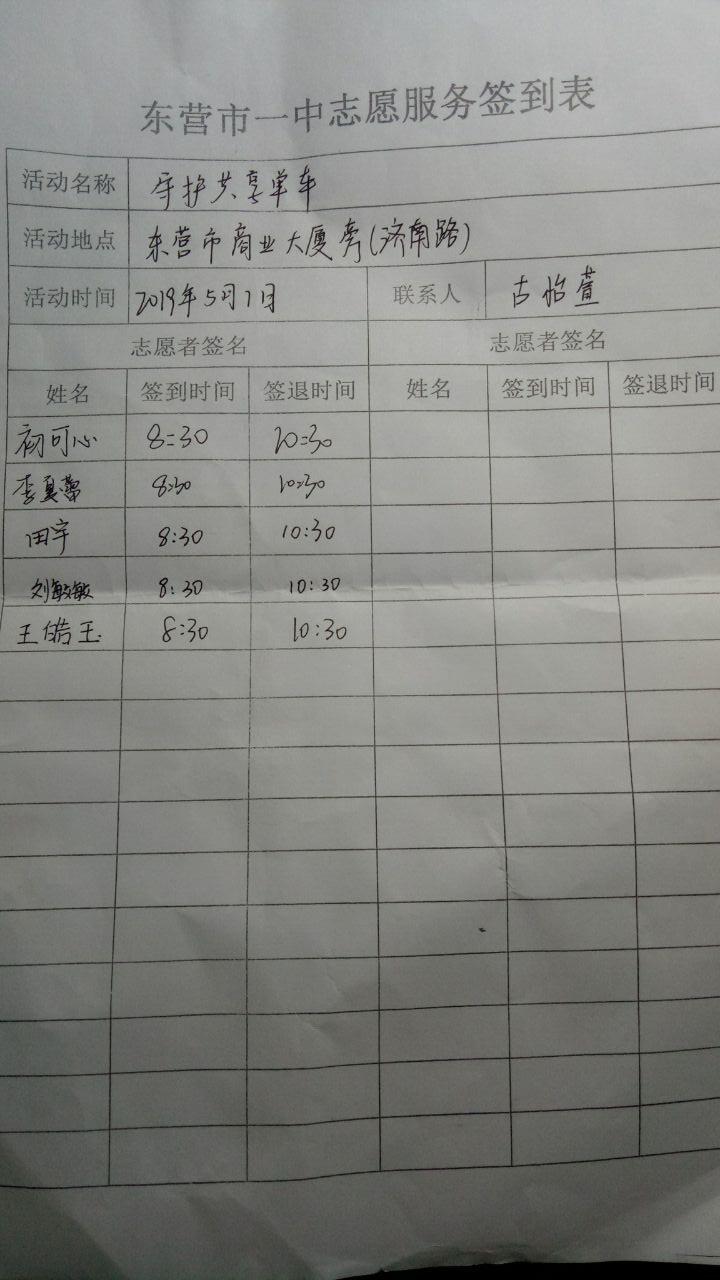 东营市一中志愿服务签到表
活动名称 守护共享单车
活动地点 东营市商业大厦旁(济南路)
活动时间 2019年5月1日 联系人 古怡萱
志愿者签名 志愿者签名
姓名 签到时间 签退时间 姓名 签到时间 签退时间
初可心 8:30 10:30
李夏蕾 8:30 10:30
田宇 8:30 10:30
刘敏敏 8:30 10:30
8:30 10:30